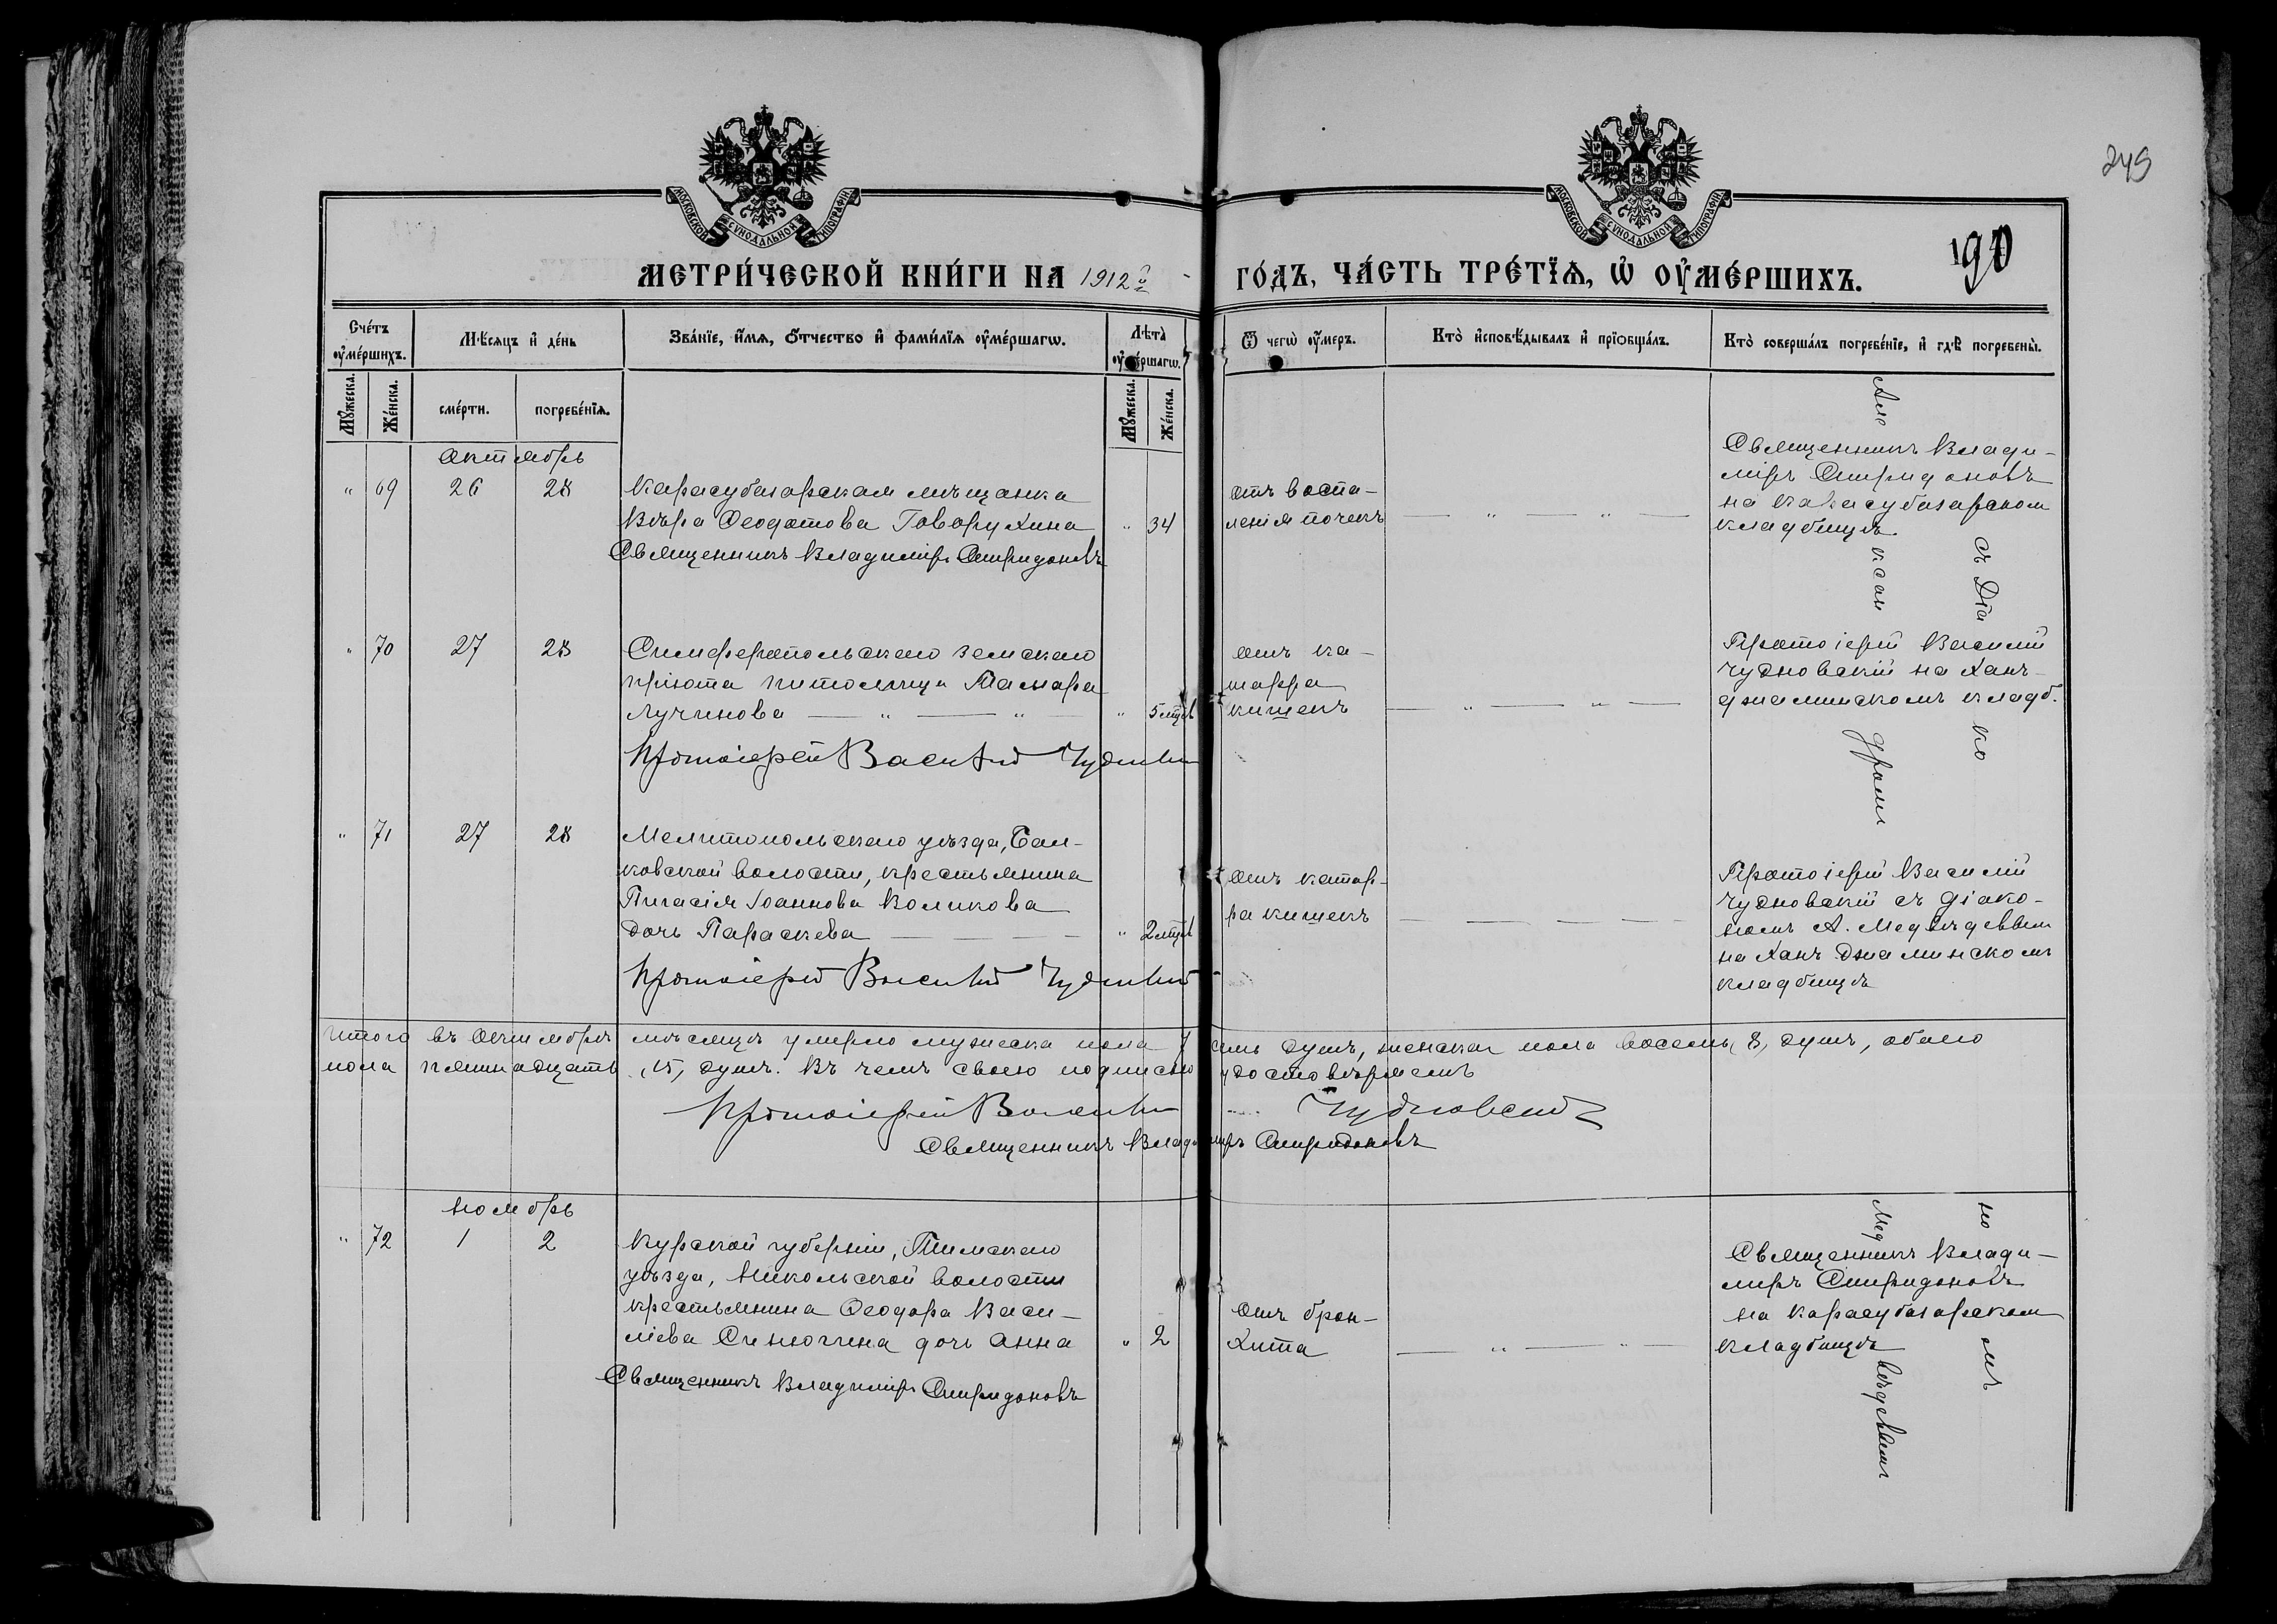 249
190
МОСКОВСКОЙ СѴНОДАЛЬНОЙ ТИПОГРАФІИ
МОСКОВСКОЙ СѴНОДАЛЬНОЙ ТИПОГРАФІИ
МЕТРИ́ЧЕСКОЙ КНИ́ГИ НА 1912й ГО́ДЪ, ЧА́СТЬ ТРЕ́ТЇѦ, Ѡ ОУ҆МЕ́РШИХЪ.
Сче́тъ оу҆ме́ршихъ.
Мѣ́сяцъ и҆ де́нь
Зва́нїе, и҆́мѧ, ѻ҆́тчество и҆ фами́лїѧ оу҆ме́ршагѡ.
Лѣ́та оу҆ме́ршагѡ.
Ѿ чегѡ̀ оу҆́меръ.
Кто̀ и҆сповѣ́дывалъ и҆ прїѻбща́лъ.
Кто̀ соверша́лъ погребе́нїе, и҆ гдѣ̀ погребены̀.
Мꙋ́жеска.
Же́нска.
сме́рти.
погребе́нїѧ.
Мꙋ́жеска.
Же́нска.
Октябрь
" 69 26 28
Карасубазарская мѣщанка
Вѣра Ѳеодотова Говорухина " 34
Священникъ Владиміръ Спиридоновъ
отъ воспа-
ленія почекъ
Священникъ Влади-
міръ Спиридоновъ
на Карасубазарском
кладбищѣ
" 70 27 28
Симферопольскаго земскаго
пріюта питомица Тамара
Лучинова " 5 мцев
Протоіерей Василій Чудновскій
отъ ка-
тарра
кишекъ
Протоіерей Василій
Чудновскій на Ханъ-
джаминскомъ кладб.
" 71 27 28
Мелитопольскаго уѣзда, Бал-
ковской волости, крестьянина
Пигасія Іоаннова Коликова
дочь Параскева " 2 мцев
Протоіерей Василій Чудновскій
отъ катар-
ра кишекъ
Протоіерей Василій
Чудновскій съ діако-
номъ А. Медвѣдевым
на Ханъ Джаминскомъ
кладбищѣ
Итого въ Октябрѣ мѣсяцѣ умерло мужеска пола 7 семь душъ, женска пола восемь, 8, душъ, обоего
пола пятнадцать, 15, душъ. Въ чемъ своею подписью удостовѣряемъ
Протоіерей Василій Чудновскій
Священникъ Владиміръ Спиридоновъ
Ноябрь
" 72 1 2
Курской губерніи, Тимскаго
уѣзда, Никольской волости
крестьянина Ѳеодора Васи-
ліева Синюгина дочь Анна " 2
Священникъ Владиміръ Спиридоновъ
отъ брон-
хита
Священникъ Влади-
міръ Спиридоновъ
на Карасубазарском
кладбищѣ
съ Діа ко но мъ
Але ксан дромъ Мед вѣдевымъ